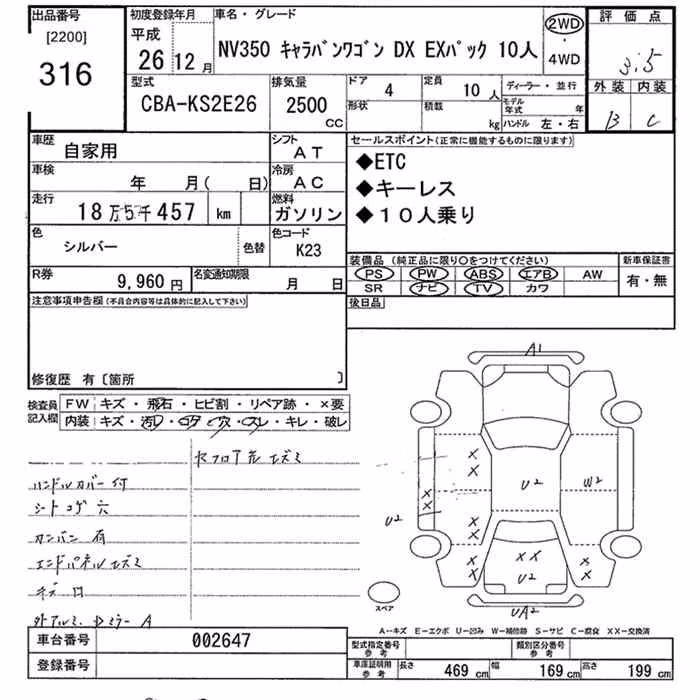 出品番号 [2200] 316
初度登録年月 平成 26 12月
車名・グレード NV350 キャラバンワゴン DX EXパック 10人
2WD・4WD
評価点 3.5
外装 B 内装 C
型式 CBA-KS2E26
排気量 2500 CC
ドア 4
定員 10 人
形状
積載 kg
ディーラー・並行
モデル年式 年
ハンドル 左・右
車歴 自家用
シフト AT
車検 年 月( 日)
冷房 AC
走行 18万5千457 km
燃料 ガソリン
色 シルバー 色替
色コード K23
R券 9,960 円
名変通知期限 月 日
セールスポイント(正常に機能するものに限ります)
◆ETC
◆キーレス
◆10人乗り
装備品 (純正品に限り○をつけてください)
PS PW ABS エアB AW
SR ナビ TV カワ
新車保証書 有・無
後日品
注意事項申告欄(不具合内容等は具体的に記入して下さい)
修復歴 有〔箇所 〕
検査員記入欄
FW キズ・飛石・ヒビ割・リペア跡・×要
内装 キズ・汚レ・コゲ・穴・スレ・キレ・破レ
ハンドルカバー付
シートコゲ穴
カンバン有
エンドパネルユガミ
A1
U2
U2
W2
U2
UA2
X X
スペア
A－キズ E－エクボ U－凹み W－補修跡 S－サビ C－腐食 XX－交換済
車台番号 002647
登録番号
型式指定番号 参考
類別区分番号 参考
車庫証明用 参考 長さ 469 cm 幅 169 cm 高さ 199 cm